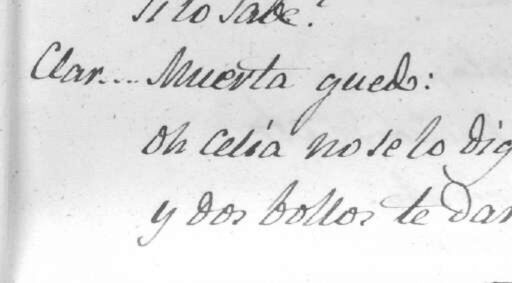 si lo sabe?
Clar... Muerta quedo:
oh Celia no se lo dig
y dos bollos te dar